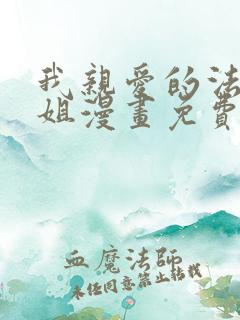 我親愛的法
姐漫畫免費
血魔法師
未任同意禁止轉載